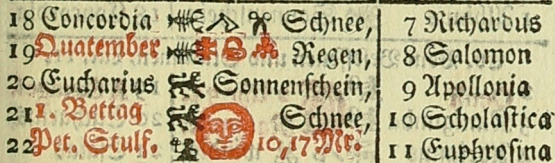 18 Concordia Schnee, 7 Richardus
19 Quatember Regen, 8 Salomon
20 Eucharius Sonnenschein, 9 Apollonia
21 1. Bettag Schnee, 10 Scholastica
22 Pet. Stulf. 10, 17 Mr. 11 Euphrosina